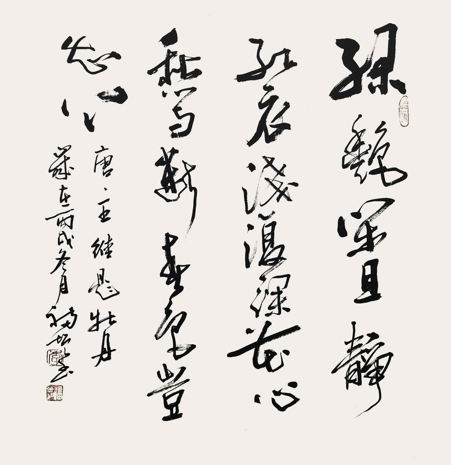 綠艷閑且靜
紅衣淺復深花心
愁欲斷春色豈
知心
唐·王維題牡丹
歲在丙戌冬月